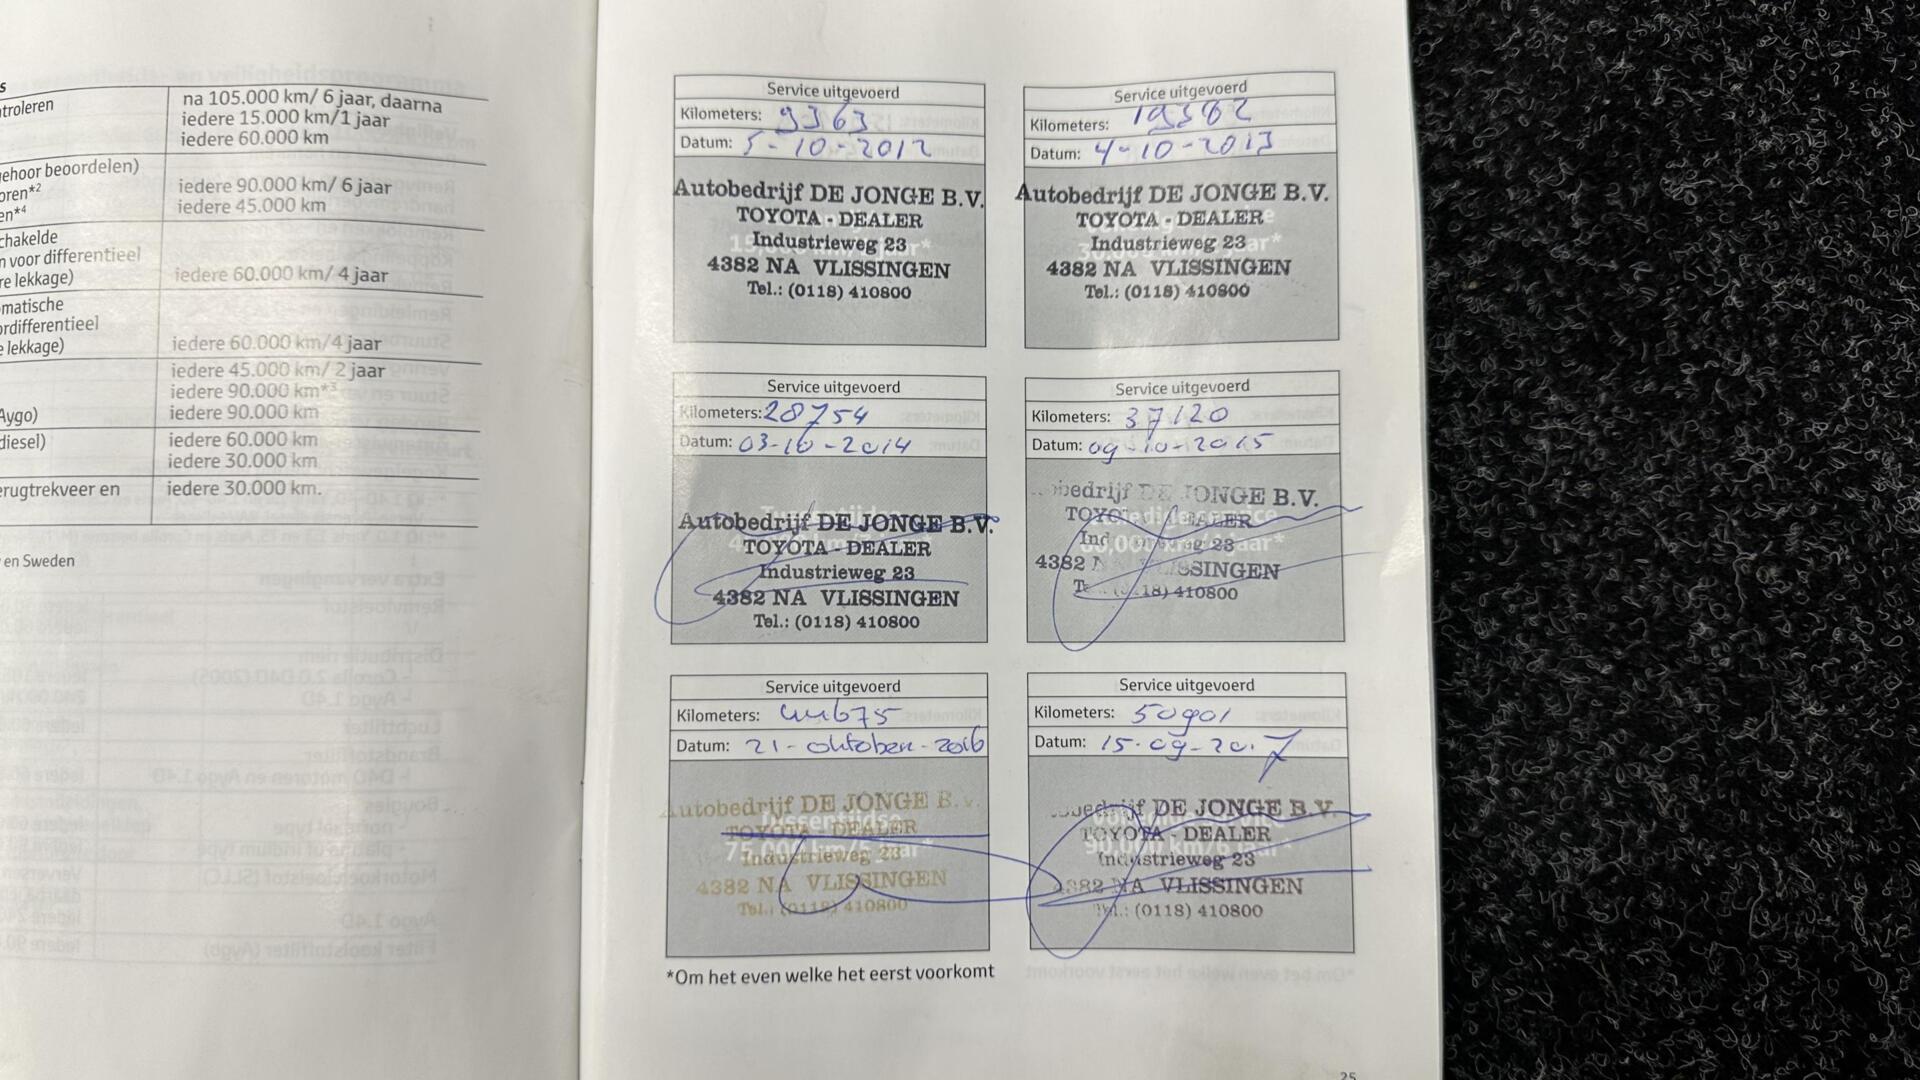 s
ntroleren
na 105.000 km/ 6 jaar, daarna
iedere 15.000 km/1 jaar
iedere 60.000 km
gehoor beoordelen)
oren*2
iedere 90.000 km/ 6 jaar
en*4
iedere 45.000 km
chakelde
n voor differentieel
re lekkage)
iedere 60.000 km/ 4 jaar
matische
ordifferentieel
e lekkage)
iedere 60.000 km/4 jaar
iedere 45.000 km/ 2 jaar
iedere 90.000 km*3
Aygo)
iedere 90.000 km
diesel)
iedere 60.000 km
iedere 30.000 km
erugtrekveer en
iedere 30.000 km.
en Sweden
Service uitgevoerd
Kilometers: 9363
Datum: 5-10-2012
Autobedrijf DE JONGE B.V.
TOYOTA - DEALER
Industrieweg 23
4382 NA VLISSINGEN
Tel.: (0118) 410800
Service uitgevoerd
Kilometers: 19382
Datum: 4-10-2013
Autobedrijf DE JONGE B.V.
TOYOTA - DEALER
Industrieweg 23
4382 NA VLISSINGEN
Tel.: (0118) 410800
Service uitgevoerd
Kilometers: 28754
Datum: 03-10-2014
Autobedrijf DE JONGE B.V.
TOYOTA - DEALER
Industrieweg 23
4382 NA VLISSINGEN
Tel.: (0118) 410800
Service uitgevoerd
Kilometers: 37120
Datum: 09-10-2015
bedrijf DE JONGE B.V.
TOYO DEALER
23
4382 VLISSINGEN
410800
Service uitgevoerd
Kilometers: 44675
Datum: 21-oktober-2016
Autobedrijf DE JONGE B.V.
TOYOTA DEALER
75.000 km/5 jaar*
Industrieweg 23
4382 NA VLISSINGEN
Tel.: (0118) 410800
Service uitgevoerd
Kilometers: 50901
Datum: 15-09-2017
bedrijf DE JONGE B.V.
TOYOTA - DEALER
90.000 km/6 jaar*
Industrieweg 23
4382 NA VLISSINGEN
Tel.: (0118) 410800
*Om het even welke het eerst voorkomt
25